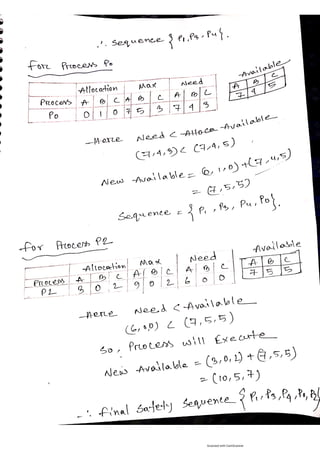 ∴ Sequence { P1, P3, P4 }.
For Process P0
Available
Allocation Max Need A B C
Process A B C A B C A B C 7 4 5
P0 0 1 0 7 5 3 7 4 3
-Here Need < Alloca Available
(7,4,3) < (7,4,5)
New Available = (0,1,0)+(7,4,5)
= (7,5,5)
Sequence = { P1, P3, P4, P0}.
for Process P2
Available
Allocation Max Need A B C
Process A B C A B C A B C 7 5 5
P2 3 0 2 9 0 2 6 0 0
-Here Need < Available
(6,0,0) < (7,5,5)
So, Process will Execute
New Available = (3,0,2) + (7,5,5)
= (10,5,7)
∴ final Safety Sequence { P1, P3, P4, P0, P2
Scanned with CamScanner